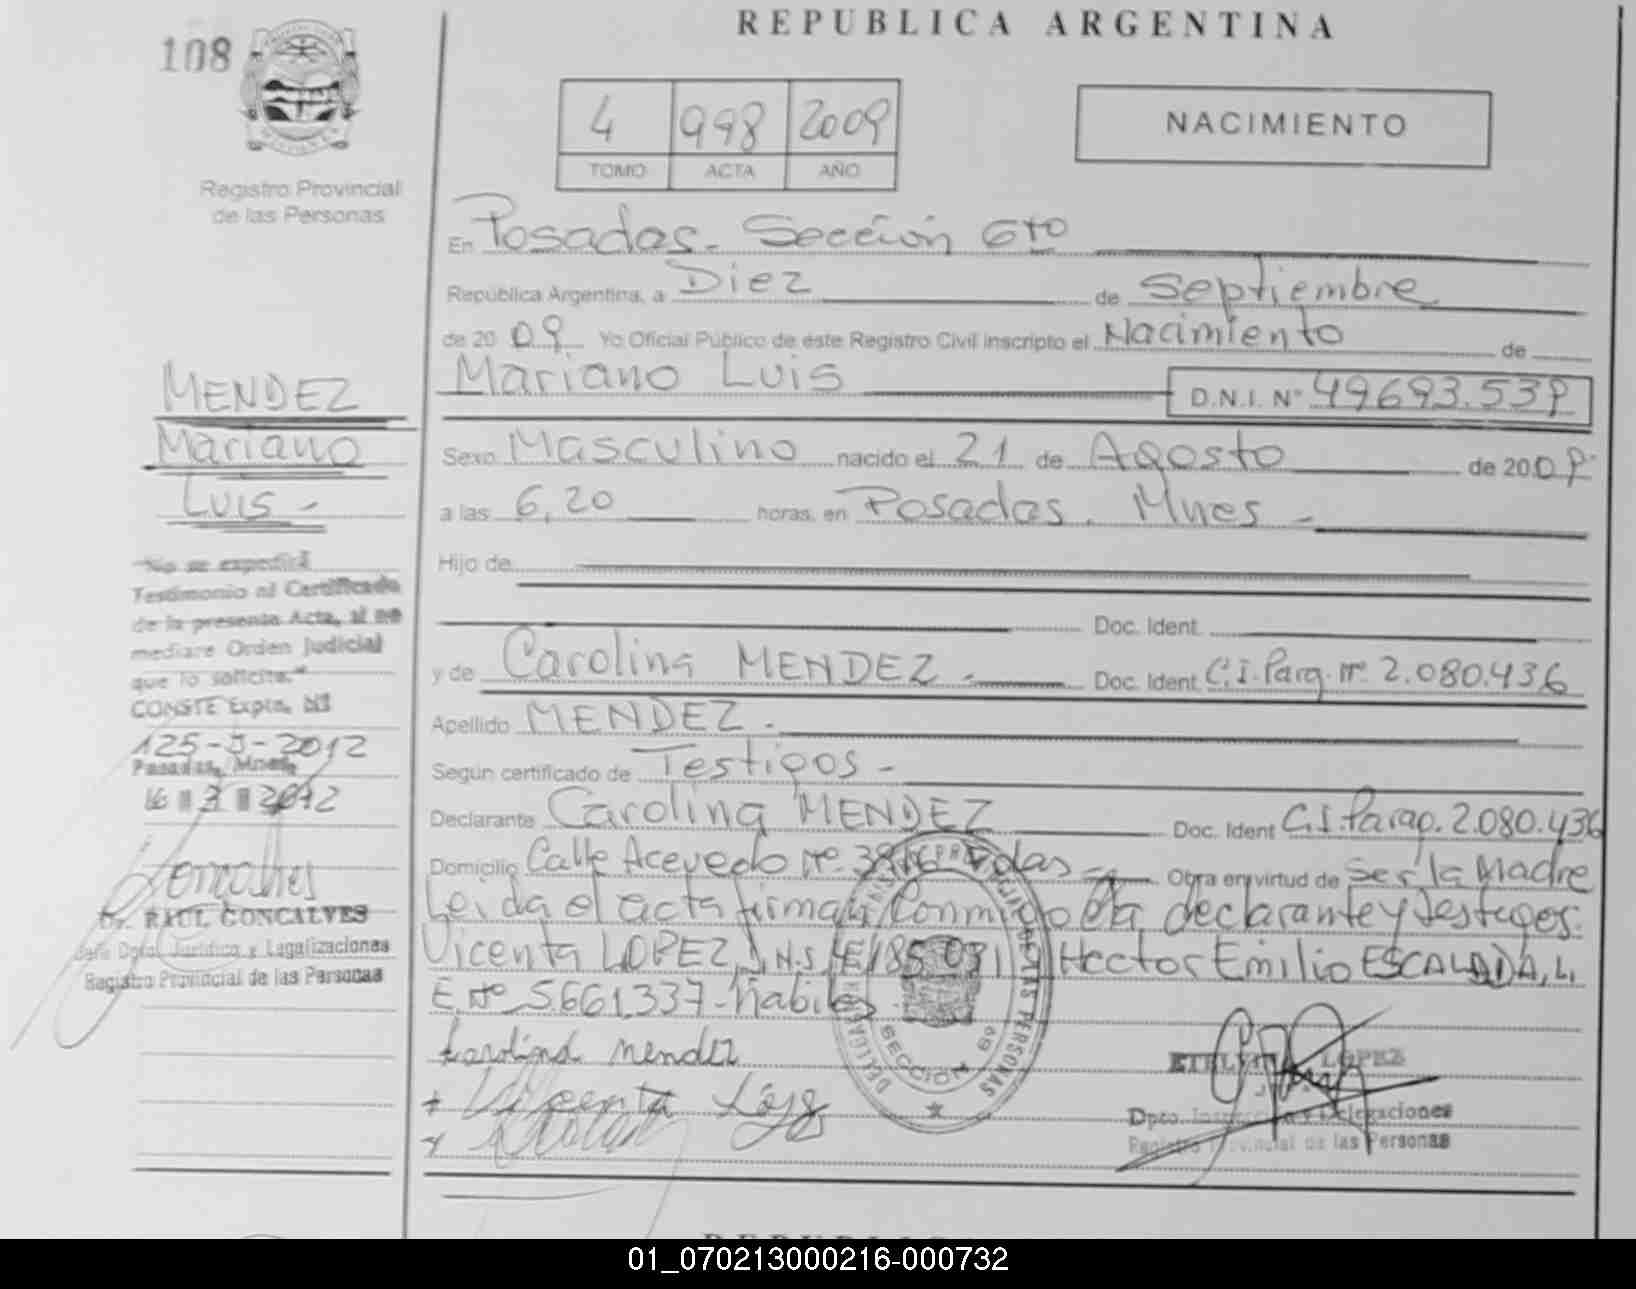 REPUBLICA ARGENTINA
108
4 998 2009
TOMO ACTA AÑO
NACIMIENTO
Registro Provincial
de las Personas
En Posadas. Sección 6to
República Argentina, a Diez de Septiembre
de 20 09 Yo Oficial Público de este Registro Civil inscripto el Nacimiento de
Mariano Luis D.N.I. N° 49693.539
MENDEZ
Mariano
Luis -
Sexo Masculino nacido el 21 de Agosto de 2009
a las 6,20 horas, en Posadas. Mnes -
Hijo de
Doc. Ident.
y de Carolina MENDEZ. Doc. Ident. C.I. Parg. nº 2.080.436
Apellido MENDEZ.
Según certificado de Testigos -
Declarante Carolina MENDEZ Doc. Ident C.I. Parag. 2.080.436
Domicilio Calle Acevedo nº Pdas Obra en virtud de ser la Madre
Leída el acta firman Conmigo la declarante y testigos:
Vicenta LOPEZ, Hector Emilio ESCALADA, L.
E. nº 5.661.337 - habiles
Carolina Mendez
Vicenta López
"No se expedirá
Testimonio ni Certificado
de la presente Acta, si no
mediare Orden Judicial
que lo solicite."
CONSTE Expte. Nº
125-J-2012
Posadas, Mnes,
16 3 2012
Dr. RAUL GONCALVES
Jefe Dpto. Jurídico y Legalizaciones
Registro Provincial de las Personas
SECCION 6º
ETELVINA LOPEZ
Dpto. Inspección y Delegaciones
Registro Provincial de las Personas
01_070213000216-000732